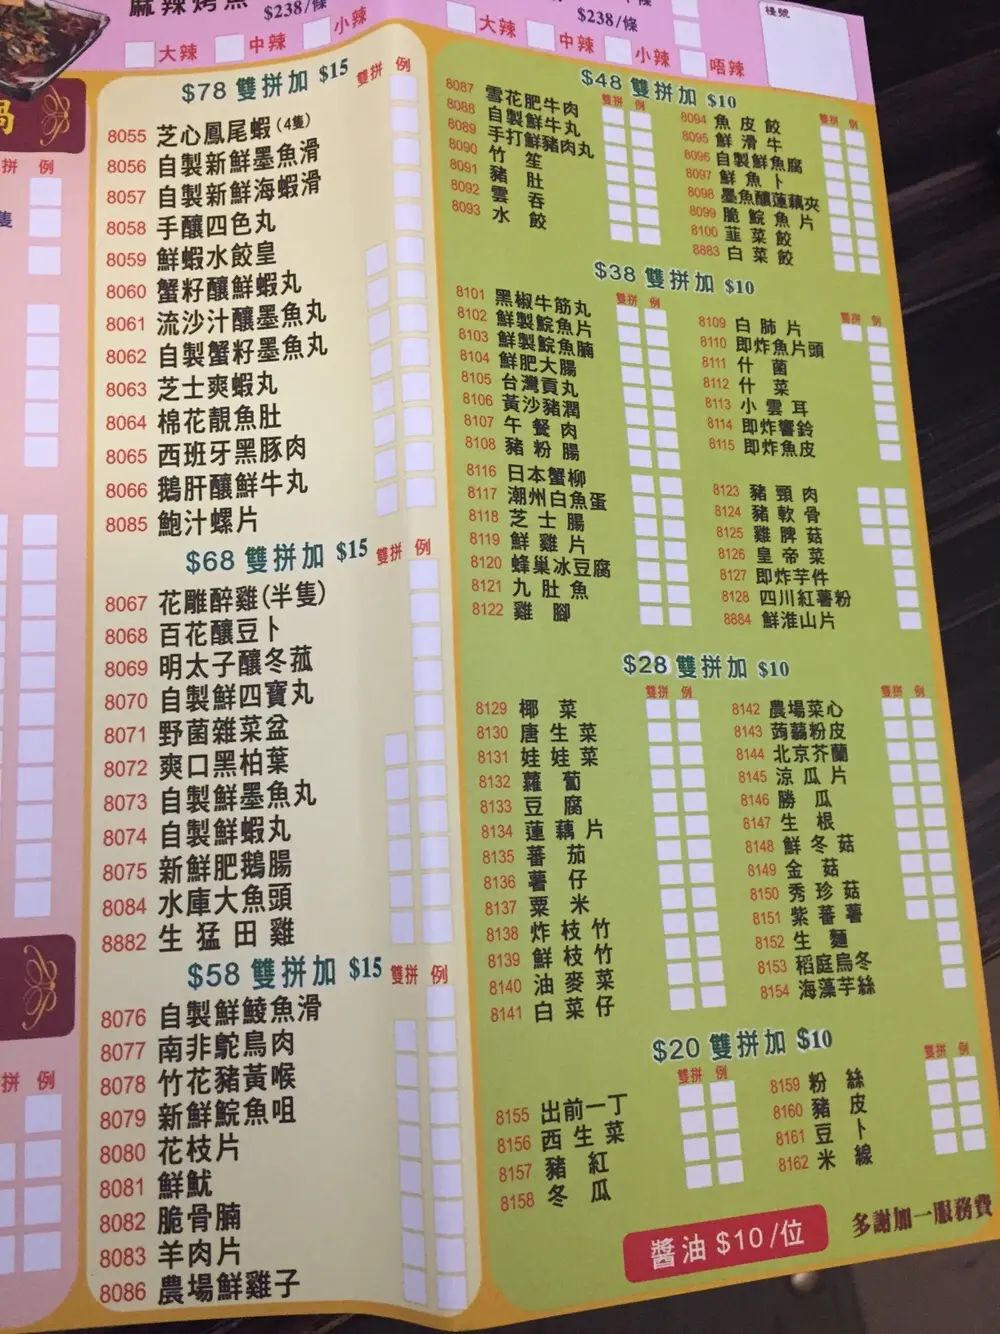 麻辣烤魚 $238/條
$238/條
大辣 中辣 小辣
大辣 中辣 小辣 唔辣
檯號
鍋
拼 例
隻
拼 例
$78 雙拼加 $15 雙拼 例
8055 芝心鳳尾蝦(4隻)
8056 自製新鮮墨魚滑
8057 自製新鮮海蝦滑
8058 手釀四色丸
8059 鮮蝦水餃皇
8060 蟹籽釀鮮蝦丸
8061 流沙汁釀墨魚丸
8062 自製蟹籽墨魚丸
8063 芝士爽蝦丸
8064 棉花靚魚肚
8065 西班牙黑豚肉
8066 鵝肝釀鮮牛丸
8085 鮑汁螺片
$68 雙拼加 $15 雙拼 例
8067 花雕醉雞(半隻)
8068 百花釀豆卜
8069 明太子釀冬菰
8070 自製鮮四寶丸
8071 野菌雜菜盆
8072 爽口黑柏葉
8073 自製鮮墨魚丸
8074 自製鮮蝦丸
8075 新鮮肥鵝腸
8084 水庫大魚頭
8882 生猛田雞
$58 雙拼加 $15 雙拼 例
8076 自製鮮鯪魚滑
8077 南非鴕鳥肉
8078 竹花豬黃喉
8079 新鮮鯇魚咀
8080 花枝片
8081 鮮魷
8082 脆骨腩
8083 羊肉片
8086 農場鮮雞子
$48 雙拼加 $10
雙拼 例
8087 雪花肥牛肉
8088 自製鮮牛丸
8089 手打鮮豬肉丸
8090 竹笙
8091 豬肚
8092 雲吞
8093 水餃
雙拼 例
8094 魚皮餃
8095 鮮滑牛
8096 自製鮮魚腐
8097 鮮魚卜
8098 墨魚釀蓮藕夾
8099 脆鯇魚片
8100 韮菜餃
8883 白菜餃
$38 雙拼加 $10
雙拼 例
8101 黑椒牛筋丸
8102 鮮製鯇魚片
8103 鮮製鯇魚腩
8104 鮮肥大腸
8105 台灣貢丸
8106 黃沙豬潤
8107 午餐肉
8108 豬粉腸
8116 日本蟹柳
8117 潮州白魚蛋
8118 芝士腸
8119 鮮雞片
8120 蜂巢冰豆腐
8121 九肚魚
8122 雞腳
雙拼 例
8109 白肺片
8110 即炸魚片頭
8111 什菌
8112 什菜
8113 小雲耳
8114 即炸響鈴
8115 即炸魚皮
8123 豬頸肉
8124 豬軟骨
8125 雞脾菇
8126 皇帝菜
8127 即炸芋件
8128 四川紅薯粉
8884 鮮淮山片
$28 雙拼加 $10
雙拼 例
8129 椰菜
8130 唐生菜
8131 娃娃菜
8132 蘿蔔
8133 豆腐
8134 蓮藕片
8135 蕃茄
8136 薯仔
8137 粟米
8138 炸枝竹
8139 鮮枝竹
8140 油麥菜
8141 白菜仔
雙拼 例
8142 農場菜心
8143 蒟蒻粉皮
8144 北京芥蘭
8145 涼瓜片
8146 勝瓜
8147 生根
8148 鮮冬菇
8149 金菇
8150 秀珍菇
8151 紫蕃薯
8152 生麵
8153 稻庭烏冬
8154 海藻芋絲
$20 雙拼加 $10
雙拼 例
8155 出前一丁
8156 西生菜
8157 豬紅
8158 冬瓜
雙拼 例
8159 粉絲
8160 豬皮
8161 豆卜
8162 米線
醬油 $10/位
多謝加一服務費